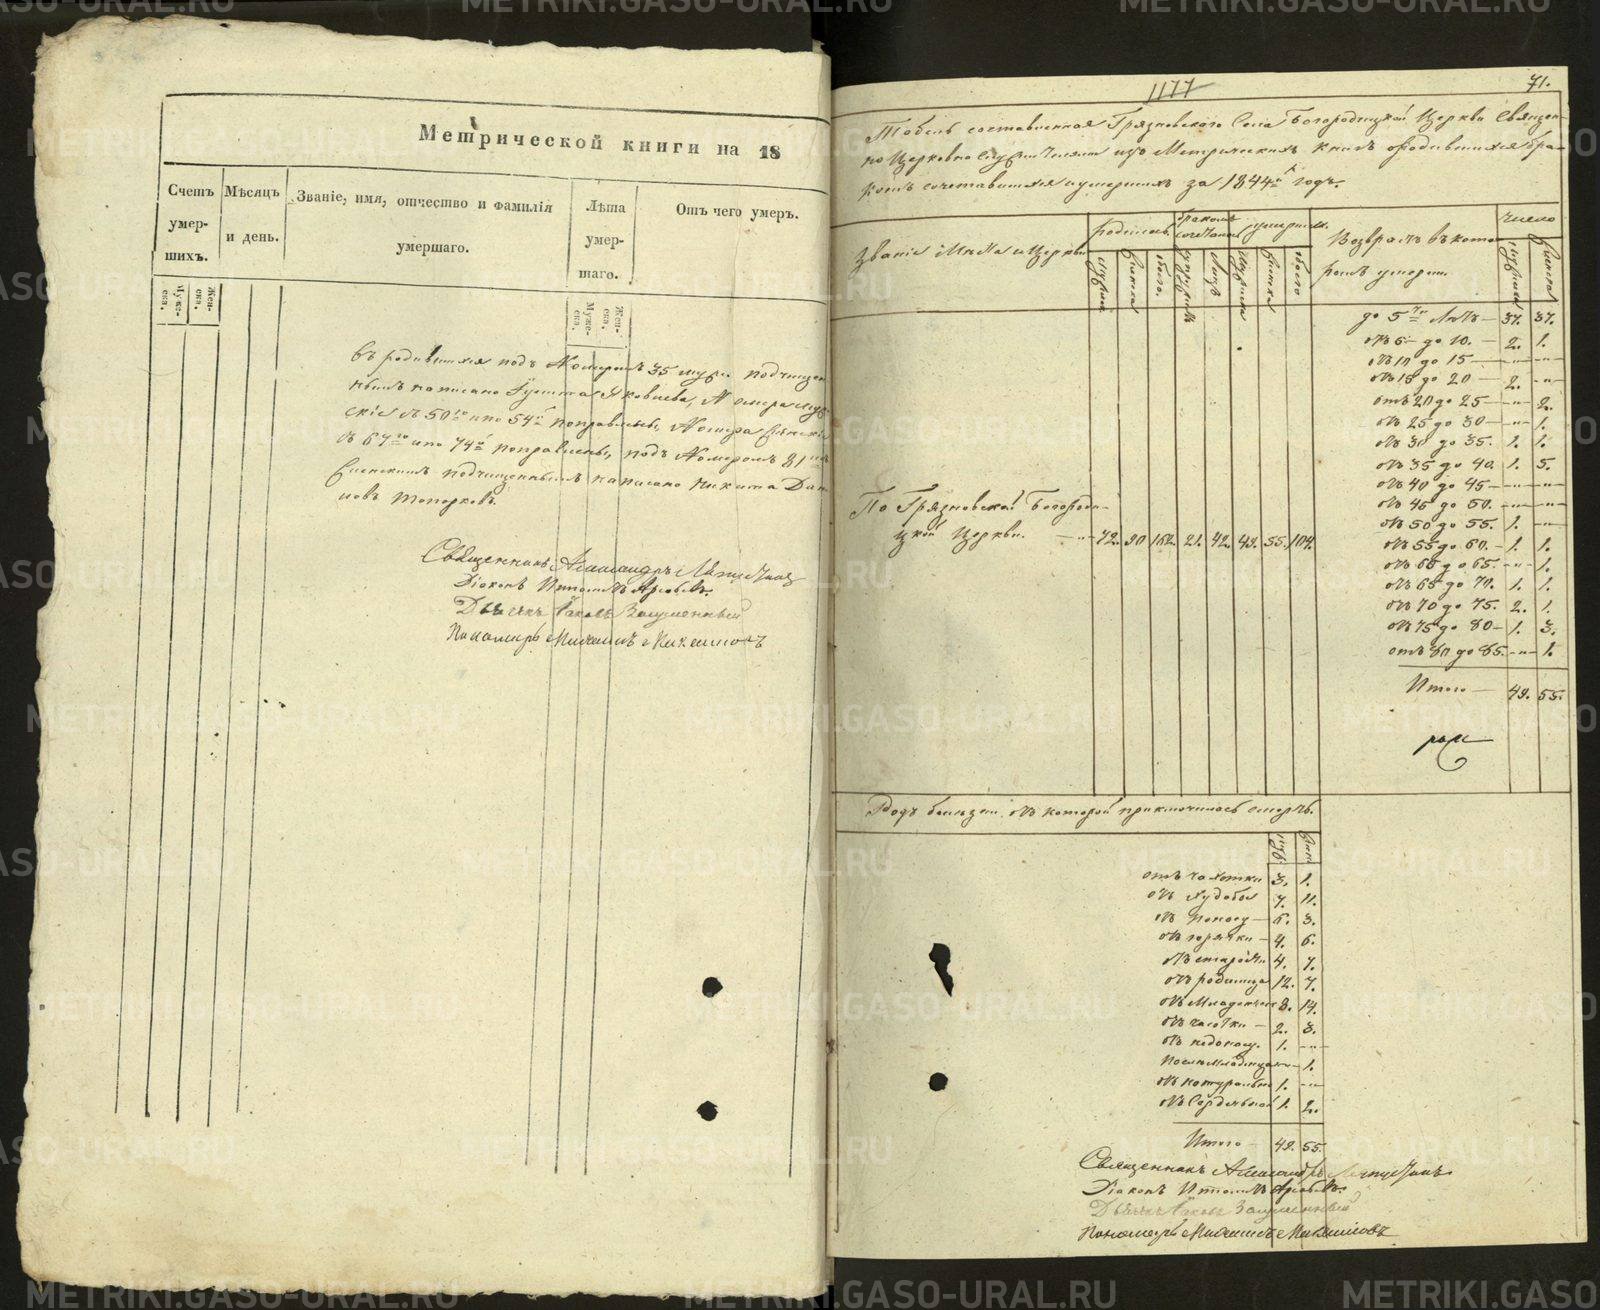 Метрической книги на 18
Счетъ умер- шихъ.
Мѣсяцъ и день.
Званіе, имя, отчество и фамилія умершаго.
Лѣта умер- шаго.
Отъ чего умеръ.
Муже- ска.
Жен- ска.
Муже- ска.
Жен- ска.
въ родившихся подъ Номеромъ 35 муж. подчищен
нымъ написано Яковлева, Номера муж
скіе съ 50го и по 54й поправлены, Номера женскіе
съ 67го и по 74й поправлены, подъ Номеромъ 81
женскимъ подчищеннымъ написано Никита Дан
ловъ Топорковъ.
Священникъ Александръ
Діаконъ
Дьячекъ Іаковъ
Пономарь
1177
71.
Табель составленная Грязновскаго Села Богородицкой Церкви Священ-
но Церковно Служителями изъ Метрическихъ книгъ о родившихся бра-
комъ сочетавшихся и умершихъ за 1844й годъ.
Званіе и Церкви
родилось
мужска
женска
обоего.
бракомъ сочетаны
супружествъ
лицъ
умершихъ.
мужска
женска
обоего
Возврастъ въ кото-
ромъ умерли
число
мужска
женска
до 5ти лѣтъ — 37. 37.
отъ 5 до 10. — 2. 1.
отъ 10 до 15 — -"- -"-
отъ 15 до 20 — 2. -"-
отъ 20 до 25 — -"- 2.
отъ 25 до 30 — -"- 1.
отъ 30 до 35. 1. 1.
отъ 35 до 40. 1. 5.
отъ 40 до 45 — -"- -"-
отъ 45 до 50. -"- -"-
отъ 50 до 55. 1. -"-
По Грязновской Богороди-
цкой Церкви. — 72. 90 162. 21. 42. 49. 55. 104.
отъ 55 до 60. — 1. 1.
отъ 60 до 65. -"- 1.
отъ 65 до 70. 1. 1.
отъ 70 до 75. 2. 1.
отъ 75 до 80 — 1. 3.
отъ 80 до 85. -"- 1.
Итого — 49. 55.
Родъ болезни отъ которой приключилась смерть.
муж.
жен.
отъ чахотки 3. 1.
отъ худобы 7. 11.
отъ поносу — 6. 3.
отъ горячки — 4. 6.
отъ старости 4. 7.
отъ родимца 12. 7.
отъ младенческ 8. 14.
отъ чесотки — 2. 3.
отъ недонос. 1. -"-
1.
отъ натуральн 1. -"-
отъ Сердечной 1. 2.
Итого — 49. 55.
Священникъ Александръ
Діаконъ
Дьячекъ Іаковъ
Пономарь
METRIKI.GASO-URAL.RU